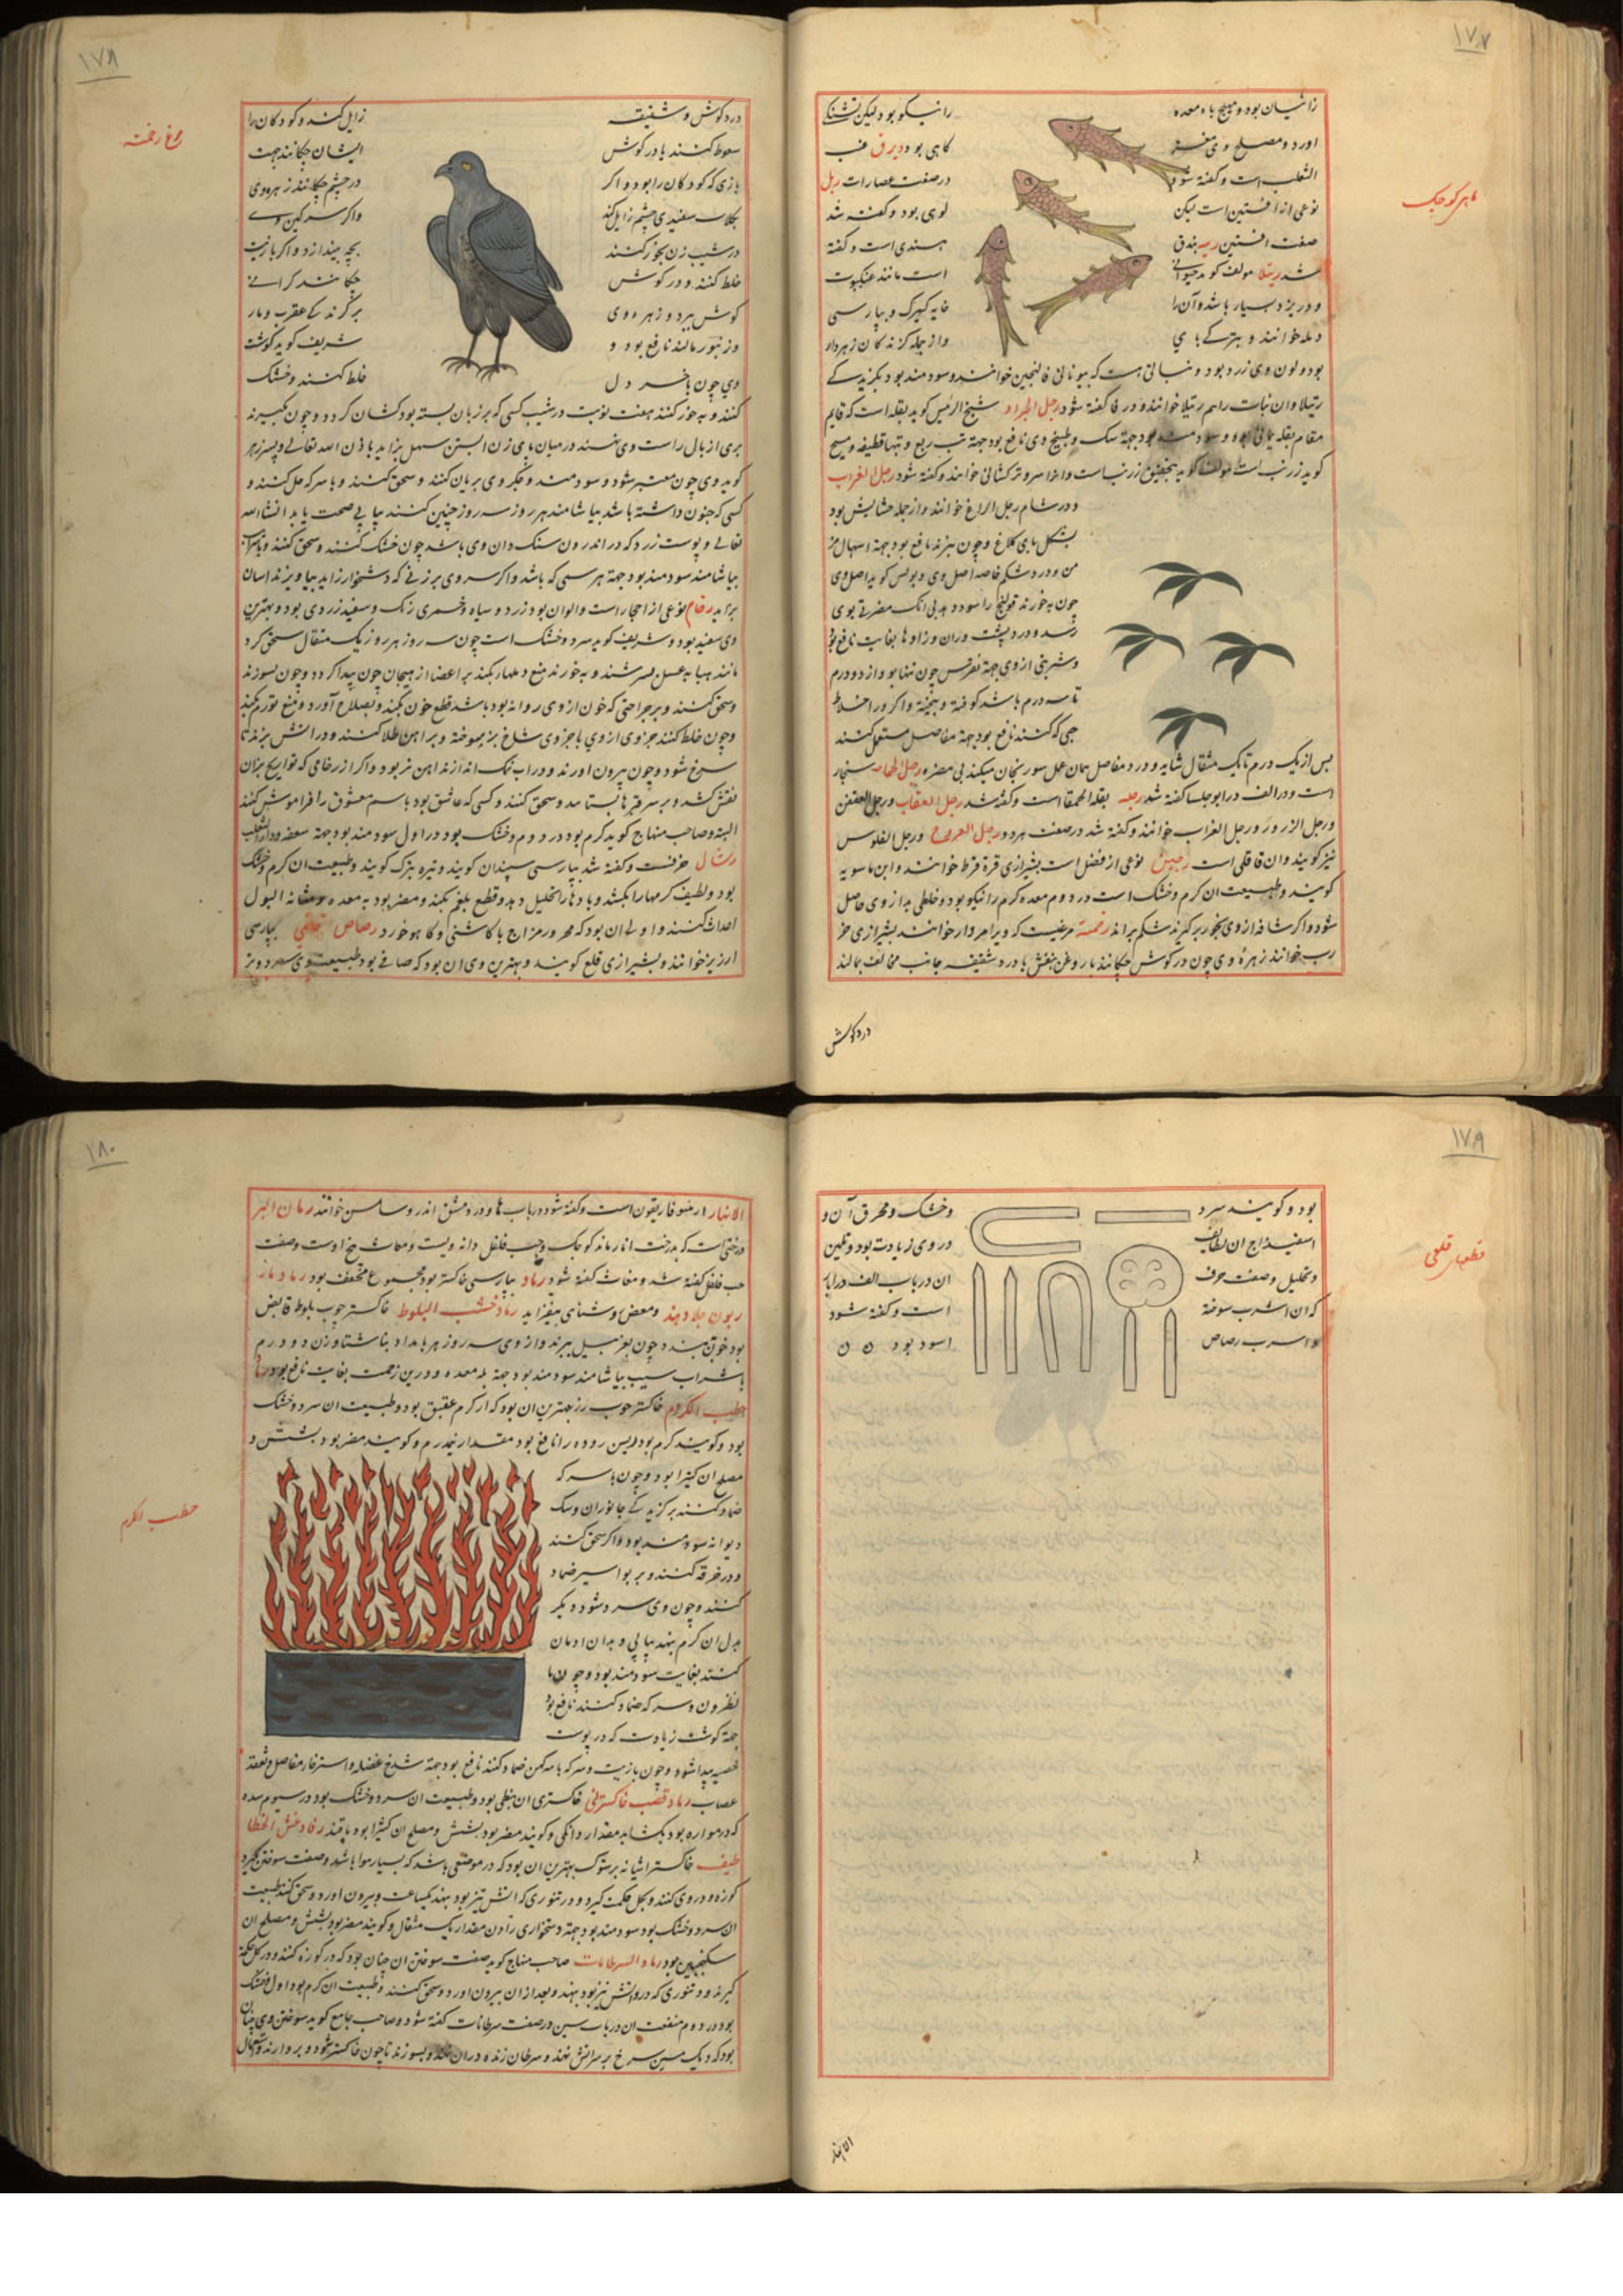 ۱۷۷
ماهی کوچک
زانیان بود و مهیج باه معده
اورد و مصلح وی مغز
الثعلب است و گفته شود
نوعی از افسنتین است لیکن
صفت افسنتین ریه بندق
شد رتیلا مولف گوید حیوانی
و در یزد بسیار باشد و آن را
دلمه خوانند و بتر کے
را نیکو بود لیکن تشنگی
کاهی بود دیرق عنب
در صفت عصارات ربل
لوبی بود و گفته شد
هندی است و گفته
است مانند عنکبوت
خایه گیرک و بپارسی
و از جمله گزندگان زهردار
بود و لون وی زرد بود و نباتی هست که بیونانی فالنجین خوانند و سودمند بود بگزیدگی
رتیلا و ان نبات را هم رتیلا خوانند و در فا گفته شود رجل الجراد شیخ الرئیس گوید بقله است که قایم
مقام بقله یمانی بود و سودمند بود جهة سک و طبیخ وی نافع بود جهة تب ربع و تبها
گوید زرنب است مولف گوید بتحقیق زرنب است و انرا سرو ترکستانی خوانند و گفته شود رجل الغراب
و در شام رجل الزاغ خوانند و از جمله حشایش بود
بشکل پای کلاغ و چون بپزند نافع بود جهة اسهال مز
من و درد شکم خاصه اصل وی و بولس گوید اصل وی
چون بخورند قولنج را سود دهد بی انک مضرتی بوی
رسد و درد پشت و ران و زانوها بغایت نافع بود
و شربتی از وی جهة نقرس چون تنها بود از دو درم
تا سه درم باشد کوفته و بیخته و اگر در اخلاط
حبی که کنند نافع بود جهة مفاصل مستعمل کنند
پس از یک درم تا یک مثقال شاید و درد مفاصل همان عمل سورنجان میکند بی مضره رجل الحمامه سنجار
است و در الف در ابوجلسا گفته شد رجله بقلة الحمقا است و گفته شد رجل العقاب و رجل العقعق
و رجل الزرزور و رجل الغراب خوانند و گفته شد در صفت هر دو رجل الفروج و رجل الفلوس
نیز گویند و ان قاقلی است
گویند و طبیعت ان گرم و خشک است در دوم معده گرم را نیکو بود و خلطی بد از وی حاصل
شود و اگر شافه از وی بخود برگیرند شکم براند رخمه مرغیست که ویرا مردار خوار خوانند بشیرازی
خوانند زهره وی چون در گوش چکانند با روغن بنفش با درد شقیقه جانب مخالف بمالند
درد گوش
۱۷۸
مرغ رخمه
درد گوش و شقیقه
سعوط کنند یا در گوش
بازی که کودکان را بود و اگر
بگلاب سفیدی چشم زایل کند
در شیب زن بخور کنند
خلط کنند و در گوش
گوش ببرد و زهره وی
و زنبور مالند نافع بود و
وی چون با خردل
زایل کند و کودکان را
ایشان چکانند جهت
در چشم چکانند زهره وی
و اگر سرگین وی
بچه بیندازد و اگر با زیت
چکانند گرانی
بر گزندگی عقرب و مار
شریف گوید گوشت
خلط کنند و خشک
کنند و بخور کنند هفت نوبت در شیب کسی که بر زبان بسته بود گشاده گردد و چون بگیرند
پری از بال راست وی نهند در میان پای زن ابستن سهل بزاید باذن الله تعالی و پسر زهر
گوید وی چون معتبر شود و سودمند و جگر وی بریان کنند و سحق کنند و با سرکه حل کنند و
کسی که جنون داشته باشد بیاشامند هر روز سه روز چنین کنند پیاپی صحت یابد انشاالله
تعالی و پوست زرد که در اندرون سنگ دان وی باشد چون خشک کنند و سحق کنند و با شراب
بیاشامند سودمند بود جهة هر سمی که باشد و اگر سر وی بر زنی که دشخوار زاید بیاویزند اسان
بزاید رخام نوعی از احجار است و الوان بود زرد و سیاه و خمری رنک و سفید زردی بود و بهترین
وی سفید بود و شریف گوید سرد و خشک است چون سه روز هر روز یک مثقال سحق کرده
مانند هبا به عسل بسرشند و بخورند منع دملها بکند بر اعضا از هیجان خون پیدا گردد و چون بسوزند
و سحق کنند و بر جراحتی که خون از وی روانه بود باشد قطع خون بکند و بصلاح آورد و منع تورم بکند
و چون خلط کنند جزوی از وی با جزوی شاخ بز سوخته و بر اهن طلا کنند و در اتش برند تا
سرخ شود و چون بیرون اورند و در اب نمک اندازند اهن نر بود و اگر از رخامی که تواریخ بران
نقش کشند و بر سر قبرها بستانند و سحق کنند و کسی که عاشق بود باسم معشوق را فراموش کند
البته و صاحب منهاج گوید گرم بود در دوم و خشک بود در اول سودمند بود جهة سعفه و داءالثعلب
رشاد حرفست و گفته شد بپارسی سپندان گویند و تیره بزرک گویند و طبیعت ان گرم و خشک
بود و لطیف کرمها را بکشد و بادها را تحلیل دهد و قطع بلغم بکند و مضر بود به معده و مثانه البول
احداث کنند و اولی ان بود که محرور مزاج با کاسنی و کاهو خورد رصاص قلعی بپارسی
ارزیز خوانند و بشیرازی قلع گویند و بهترین وی ان بود که صافی بود طبیعت وی سرد و تر
۱۷۹
قطعهای قلعی
بود و گویند سرد
اسفیداج ان لطافت
و تحلیل و صفت حرف
که ان اشرب سوخته
و اسرب رصاص
و خشک و محرق آن و
در وی زیادت بود و تلیین
ان در باب الف در ابار
است و گفته شود
اسود بود ٥ ٥
الانهار
۱۸۰
حطب الکرم
الانهار ارمنوفاریقون است و گفته شود در باب ها و در دمشق اندروسامس خوانند رمان البر
درختی است که بدرخت انار ماند کوچک و حب فلفل دانه ویست و مغاث بیخ اوست و صفت
حب فلفل گفته شد و مغاث گفته شود رماد بپارسی خاکستر بود مجموع مجفف بود رماد مار
ربون جلا دهد و معض روشنای بیفزاید رماد خشب البلوط خاکستر چوب بلوط قابض
بود خون ببندد چون بغربیل ببزند و از وی سه روز هر بامداد بناشتا وزن دو درم
با شراب سیب بیاشامند سودمند بود جهة بله معده و درین زحمت بغایت نافع بود رماد
حطب الکرم خاکستر چوب رز بهترین ان بود که از کرم عتیق بود و طبیعت ان سرد و خشک
بود و گویند گرم بود و ریش روده را نافع بود مقدار نیم درم و گویند مضر بود بشش و
مصلح ان کثیرا بود و چون با سرکه
ضماد کنند بر گزیدگی جانوران و سگ
دیوانه سودمند بود و اگر سحق کنند
و در خرقه کنند و بر بواسیر ضماد
کنند و چون وی سرد شود دیگر
بدل ان گرم بنهند پیاپی و بدان ادمان
کنند بغایت سودمند بود و چون با
نطرون و سرکه ضماد کنند نافع بود
جهة گوشت زیادت که در پوست
خصیه پیدا شود و چون با زیت و سرکه با هم کهن ضماد کنند نافع بود جهة شدخ عضله و استرخا مفاصل و تعقد
عصاب رماد قصب خاکسترنی خاکستری ان نبطی بود و طبیعت ان سرد و خشک بود در سیوم سده
که در مراره بود بگشاید مقدار دانگی و گویند مضر بود بشش و مصلح ان کثیرا بود یا قند رماد عش الخطا
طیف خاکستر اشیانه پرستوک بهترین ان بود که در موضعی باشد که بسیار هوا باشد و صفت سوختن بگیرد
کوزه و در وی کنند و بگل حکمت گیرد و در تنوری که اتش تیز بود بنهد یکساعت و بیرون اورد و سحق کند طبیعت
ان سرد و خشک بود سودمند بود جهة دشخواری زادن مقدار یک مثقال و گویند مضر بود بشش و مصلح ان
سکنجبین بود رماد السرطانات صاحب منهاج گوید صفت سوختن ان چنان بود که در کوزه کنند و در گل حکمة
گیرند و در تنوری که در وی اتش تیز بود بنهند و بعد از ان بیرون اورد و سحق کنند و طبیعت ان گرم بود اول و خشک
بود در دوم منفعت ان در باب سین در صفت سرطانات گفته شود و صاحب جامع گوید سوختن وی چنان
بود که دیک مسین سرخ بر سر اتش نهند و سرطان زنده در ان نهند و بسوزند تا چون خاکستر شود و بردارند و استعمال